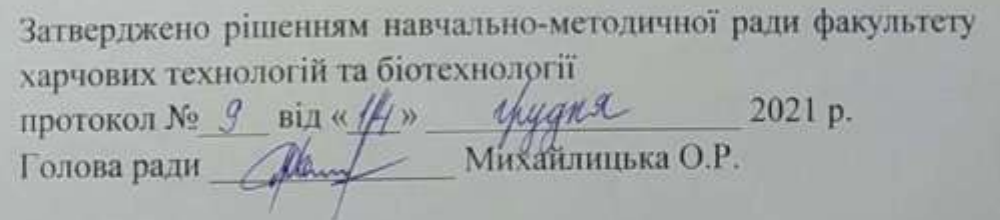 Затверджено рішенням навчально-методичної ради факультету
харчових технологій та біотехнології
протокол № 9 від «14» грудня 2021 р.
Голова ради Михайлицька О.Р.